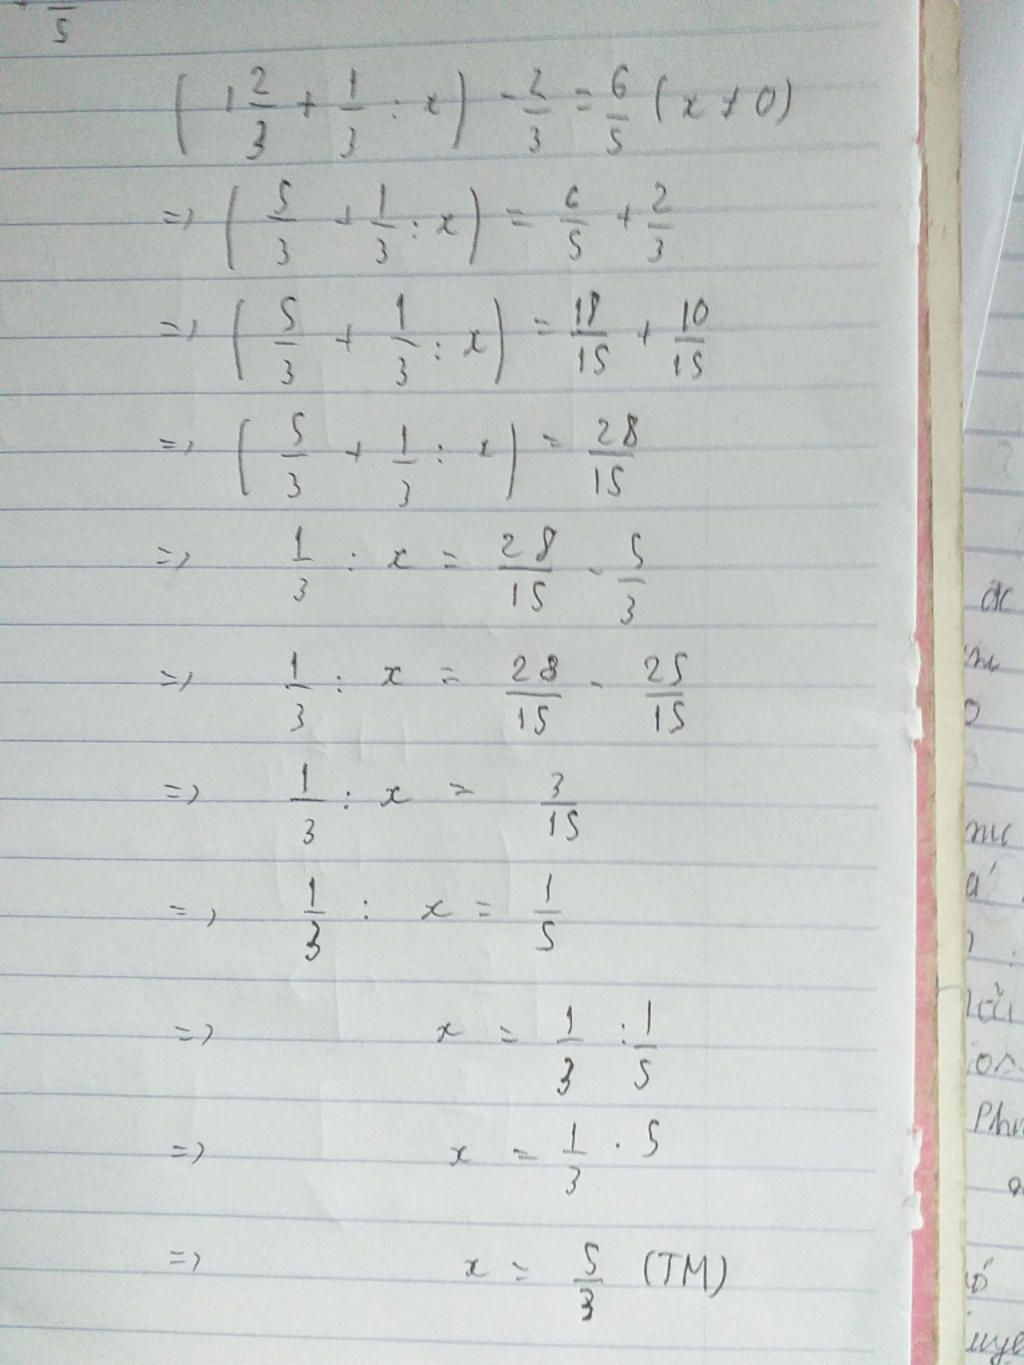 5
( 1 2/3 + 1/3 : x ) - 2/3 = 6/5 ( x ≠ 0 )
=> ( 5/3 + 1/3 : x ) = 6/5 + 2/3
=> ( 5/3 + 1/3 : x ) = 18/15 + 10/15
=> ( 5/3 + 1/3 : x ) = 28/15
=> 1/3 : x = 28/15 - 5/3
=> 1/3 : x = 28/15 - 25/15
=> 1/3 : x = 3/15
=> 1/3 : x = 1/5
=> x = 1/3 : 1/5
=> x = 1/3 . 5
=> x = 5/3 (TM)